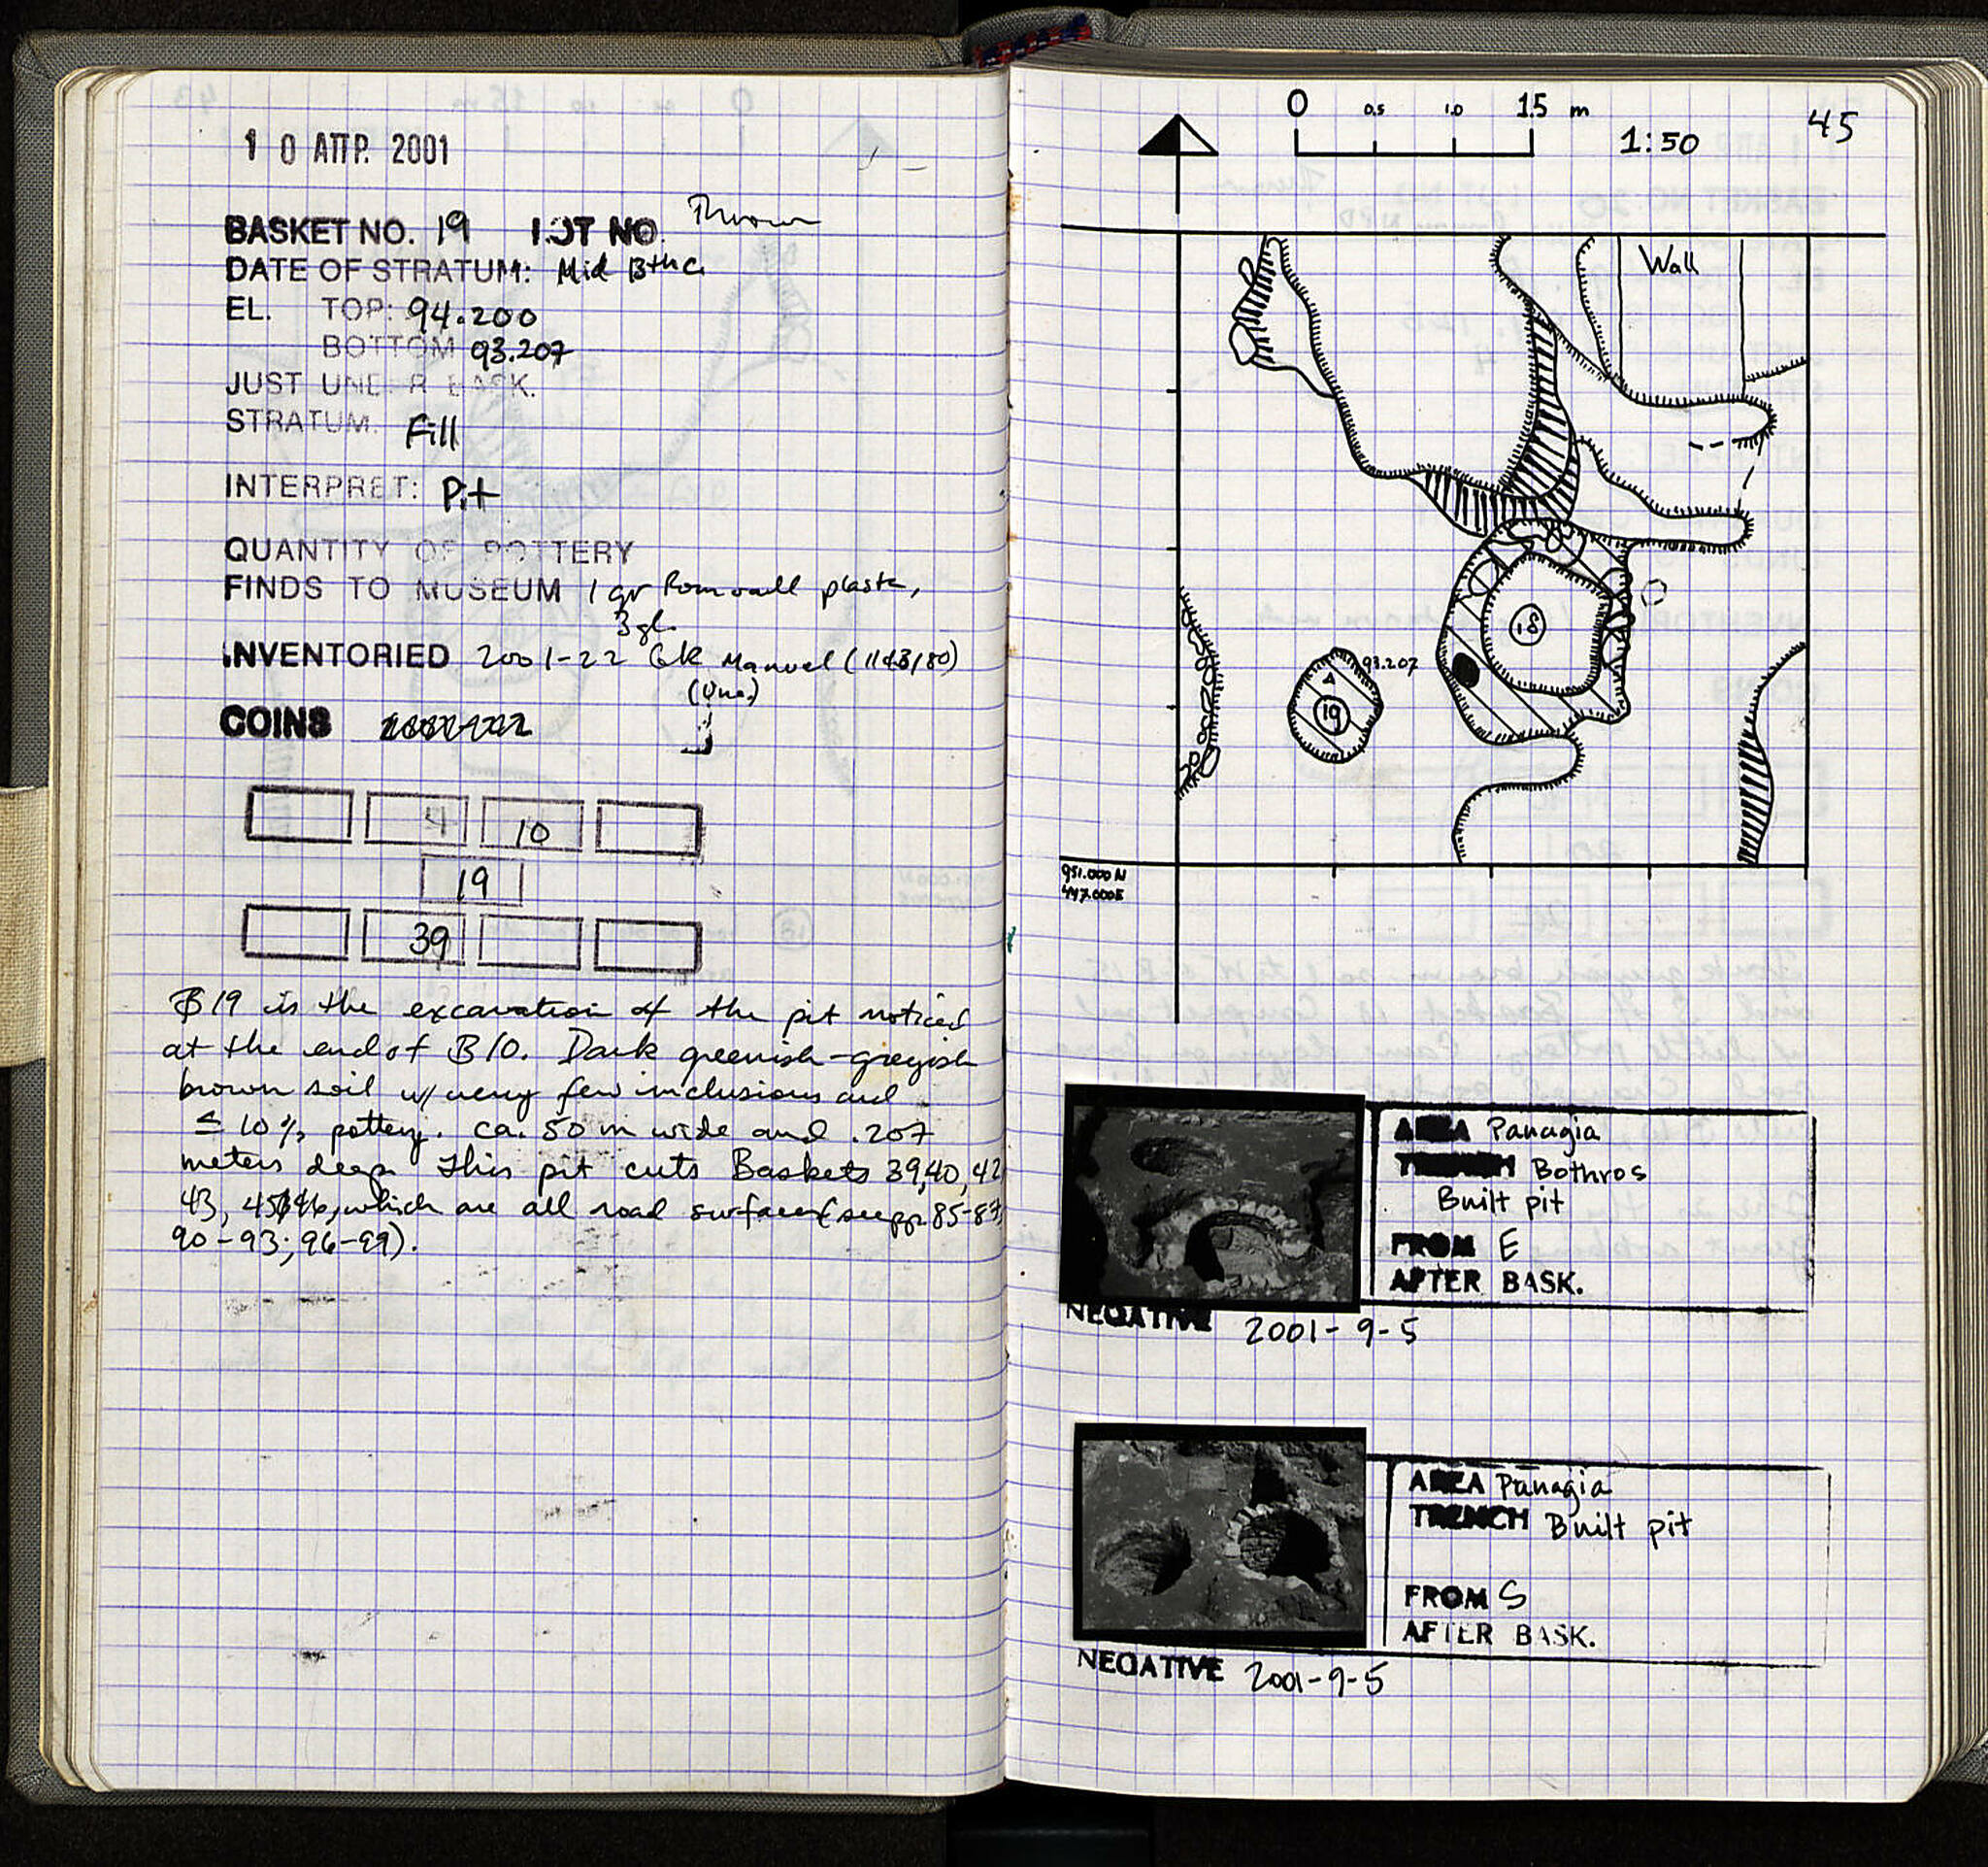 1 0 ΑΠΡ. 2001
BASKET NO. 19 LOT NO. Thrown
DATE OF STRATUM: Mid 13th c.
EL. TOP: 94.200
BOTTOM 93.207
JUST UNDER BASK.
STRATUM. Fill
INTERPRET: Pit
QUANTITY OF POTTERY
FINDS TO MUSEUM 1 gr Rom wall plaste,
3 gl.
INVENTORIED 2001-22 Gk Manuel (1143/80)
(Unc.)
COINS
4 10
19
39
B19 is the excavation of the pit noticed
at the end of B10. Dark greenish-greyish
brown soil w/ very few inclusions and
≤ 10% pottery. ca. 50 m wide and .207
meters deep. This pit cuts Baskets 39,40,42
43, 45 &46, which are all road surfaces (see pp. 85-87,
90-93; 96-99).
0 0.5 1.0 1.5 m
1:50
45
Wall
18
93.207
19
951.000 N
447.000E
AREA Panagia
TRENCH Bothros
Built pit
FROM E
AFTER BASK.
NEGATIVE 2001-9-5
AREA Panagia
TRENCH Built pit
FROM S
AFTER BASK.
NEGATIVE 2001-9-5